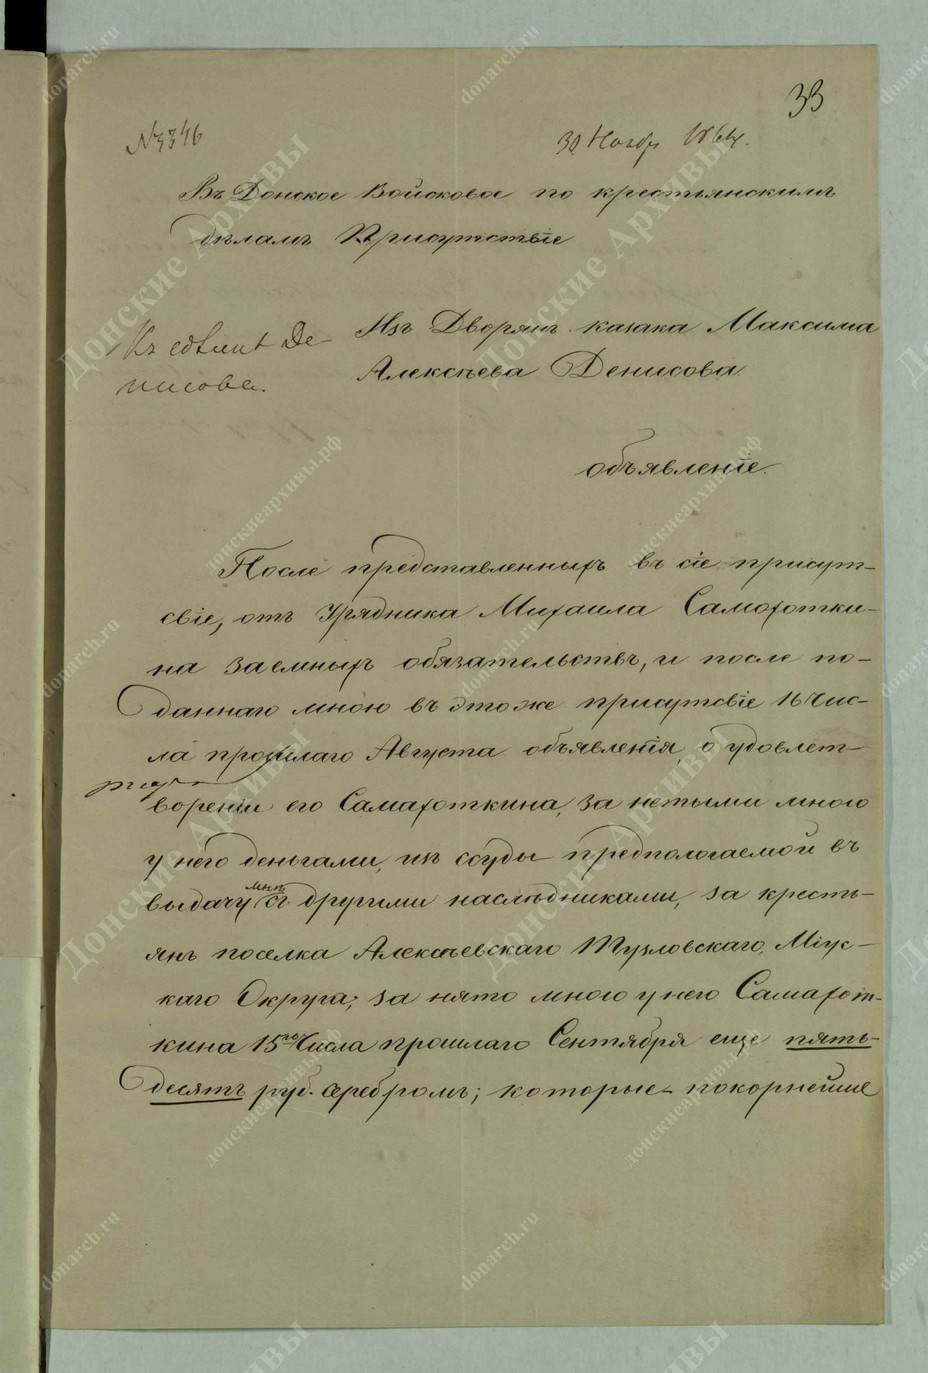 33
№ 3346
30 Ноябр 1864.
Въ Донское Войсковое по крестьянскимъ
дѣламъ Присутствіе
Изъ Дворянъ казака Максима
Алексѣева Денисова.
Къ Де-
нисова.
объявленіе.
После представленныхъ въ сіе присут-
свіе, отъ Урядника Михаила Самохотки-
на заемныхъ обязательствъ, и после по-
даннаго мною въ этоже присутсвіе 16 Чис-
ла прошлаго Августа объявленія, о удовлет-
вореніи его Самахоткина, за нетыми мною
у него деньгами, изъ ссуды предпологаемой въ
выдачу мнѣ съ другими наслѣдниками, за кресть-
янъ поселка Алексѣевскаго Тузловскаго, Міус-
каго Округа; за нято мною у него Самахот-
кина 15го Числа прошлаго Сентября еще пять-
десятъ руб. серебромъ; которые покорнейше
донскиеархивы.рф
donarch.ru
Донские Архивы